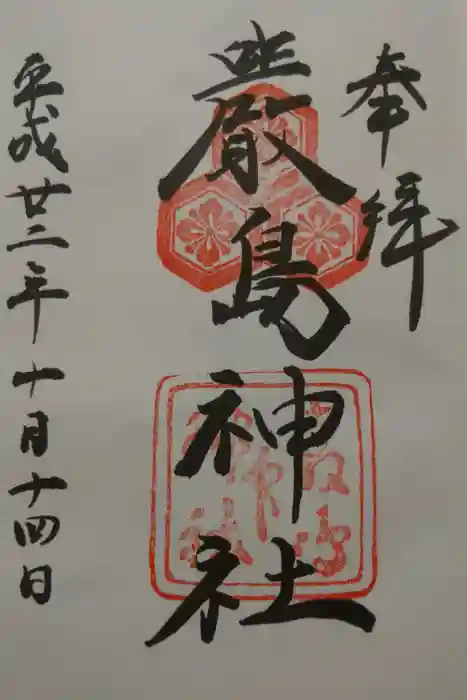 奉拝
嚴島神社
平成廿二年十月十四日
嚴島
神社